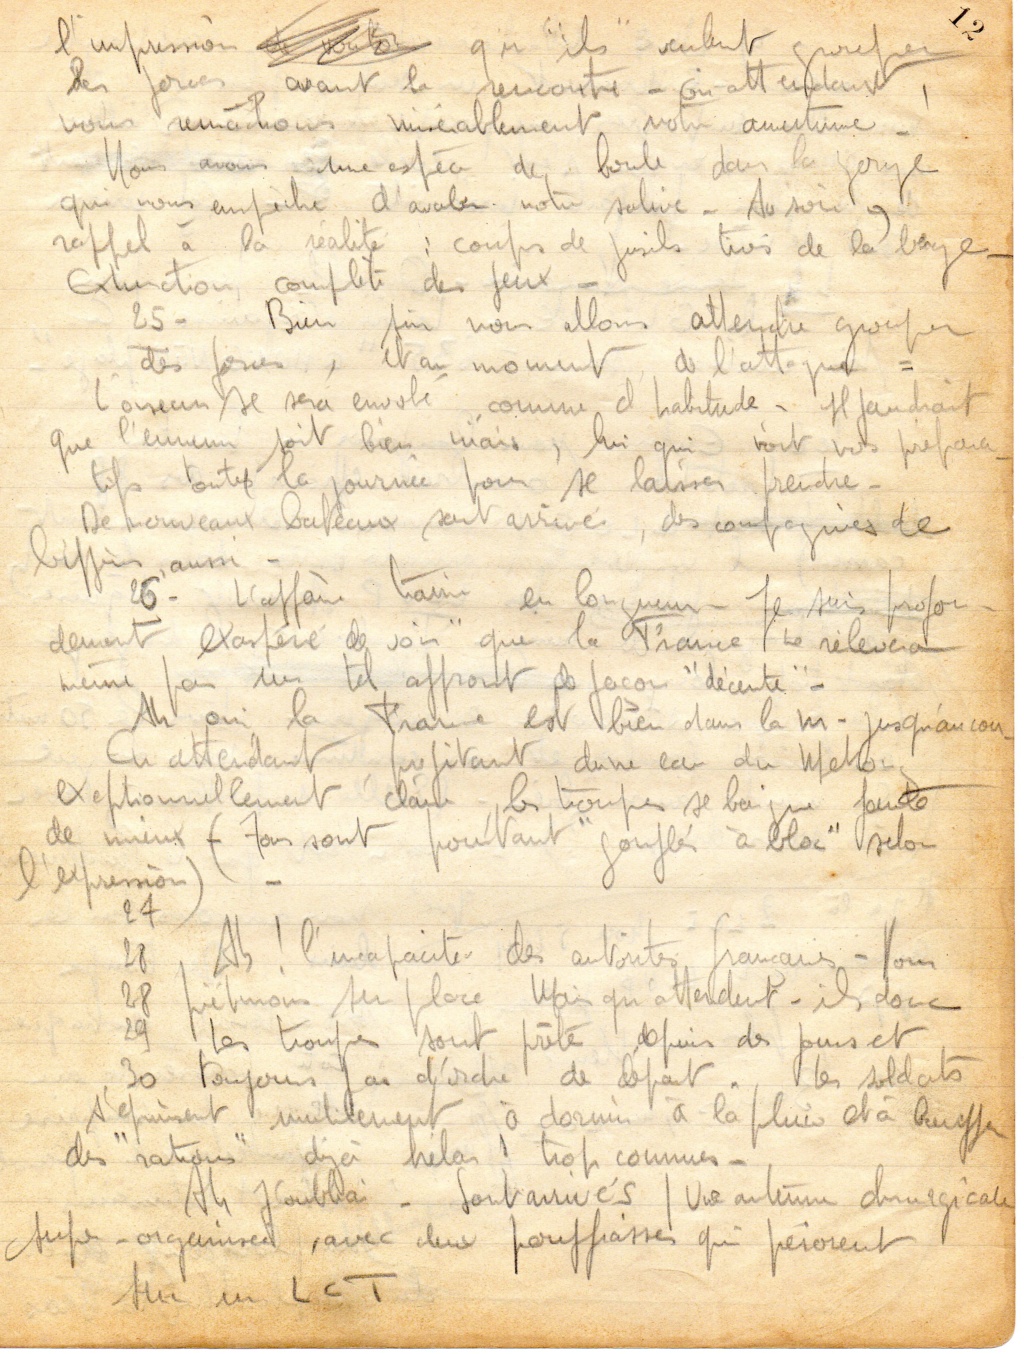 12
l'impression qu'"ils" veulent grouper
les forces avant la rencontre - En attendant,
nous remâchons misérablement notre amertume -
Nous avons une espèce de boule dans la gorge
qui nous empêche d'avaler notre salive - Au soir,
rappel à la réalité : coups de fusils tirés de la berge -
Extinction complète des feux -
25 - Bien sûr nous allons attendre grouper
des forces, et au moment de l'attaque =
l'oiseau se sera envolé comme d'habitude - Il faudrait
que l'ennemi soit bien niais, lui qui voit nos prépara-
tifs toute la journée pour se laisser prendre -
De nouveaux bateaux sont arrivés, des compagnies de
biffins, aussi -
26 - L'affaire traine en longueur - Je suis profon-
dement exaspéré de voir "que la France ne relèvera
même pas un tel affront de façon "décente" -
Ah oui la France est bien dans la m - jusqu'au cou -
En attendant profitant d'une eau du Mekong
exeptionnellement claire, les troupes se baigne faute
de mieux (Tous sont pourtant "gonflés à bloc" selon
l'expression) -
27
28 Ah ! l'incapacité des autorités françaises - Nous
28 piétinons sur place Mais qu'attendent - ils donc
29 Les troupes sont prête depuis des jours et
30 toujours pas d'ordre de départ. Les soldats
s'épuisent inutilement à dormir à la pluie et à bouffer
des "rations" déjà hélas ! trop connues -
Ah j'oubliai - Sont arrivés / Une antenne chirurgicale
super-organisée, avec deux pouffiasses qui pérorent
sur un LCT